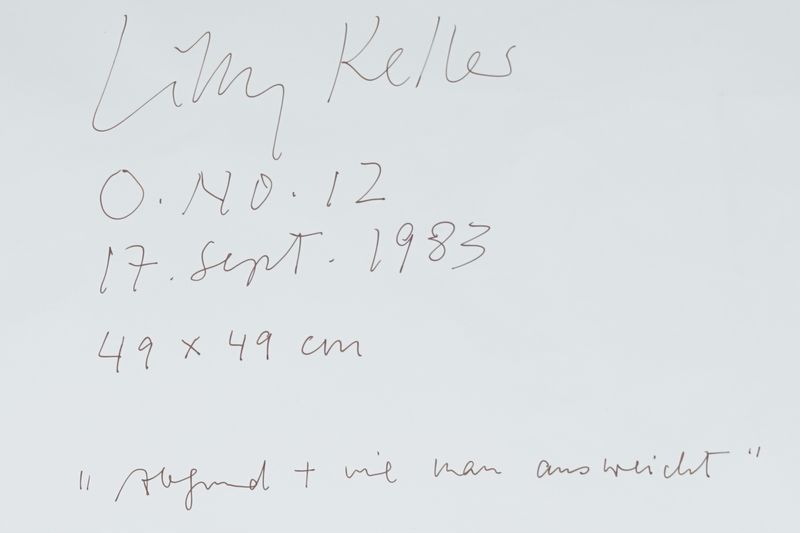 Lilly Keller
O. NO. 12
17. Sept. 1983
49 x 49 cm
"Abgrund + wie man ausweicht"